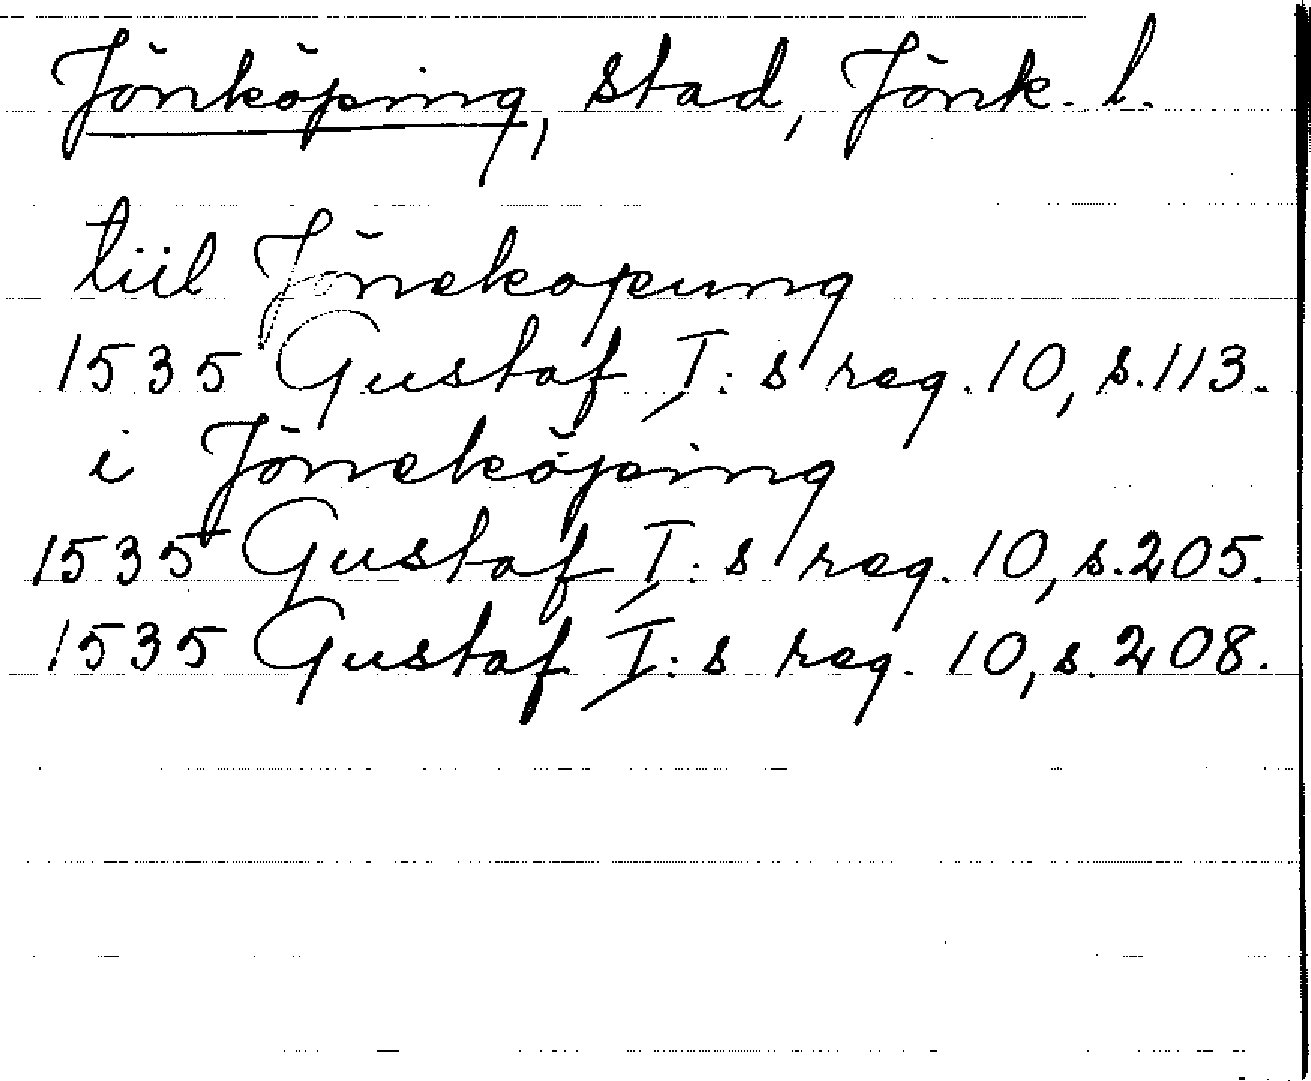 Jönköping, stad, Jönk. l.
tiil Jönekopung
1535 Gustaf I:s reg. 10, s. 113.
i Jöneköping
1535 Gustaf I:s reg. 10, s. 205.
1535 Gustaf I:s reg. 10, s. 208.